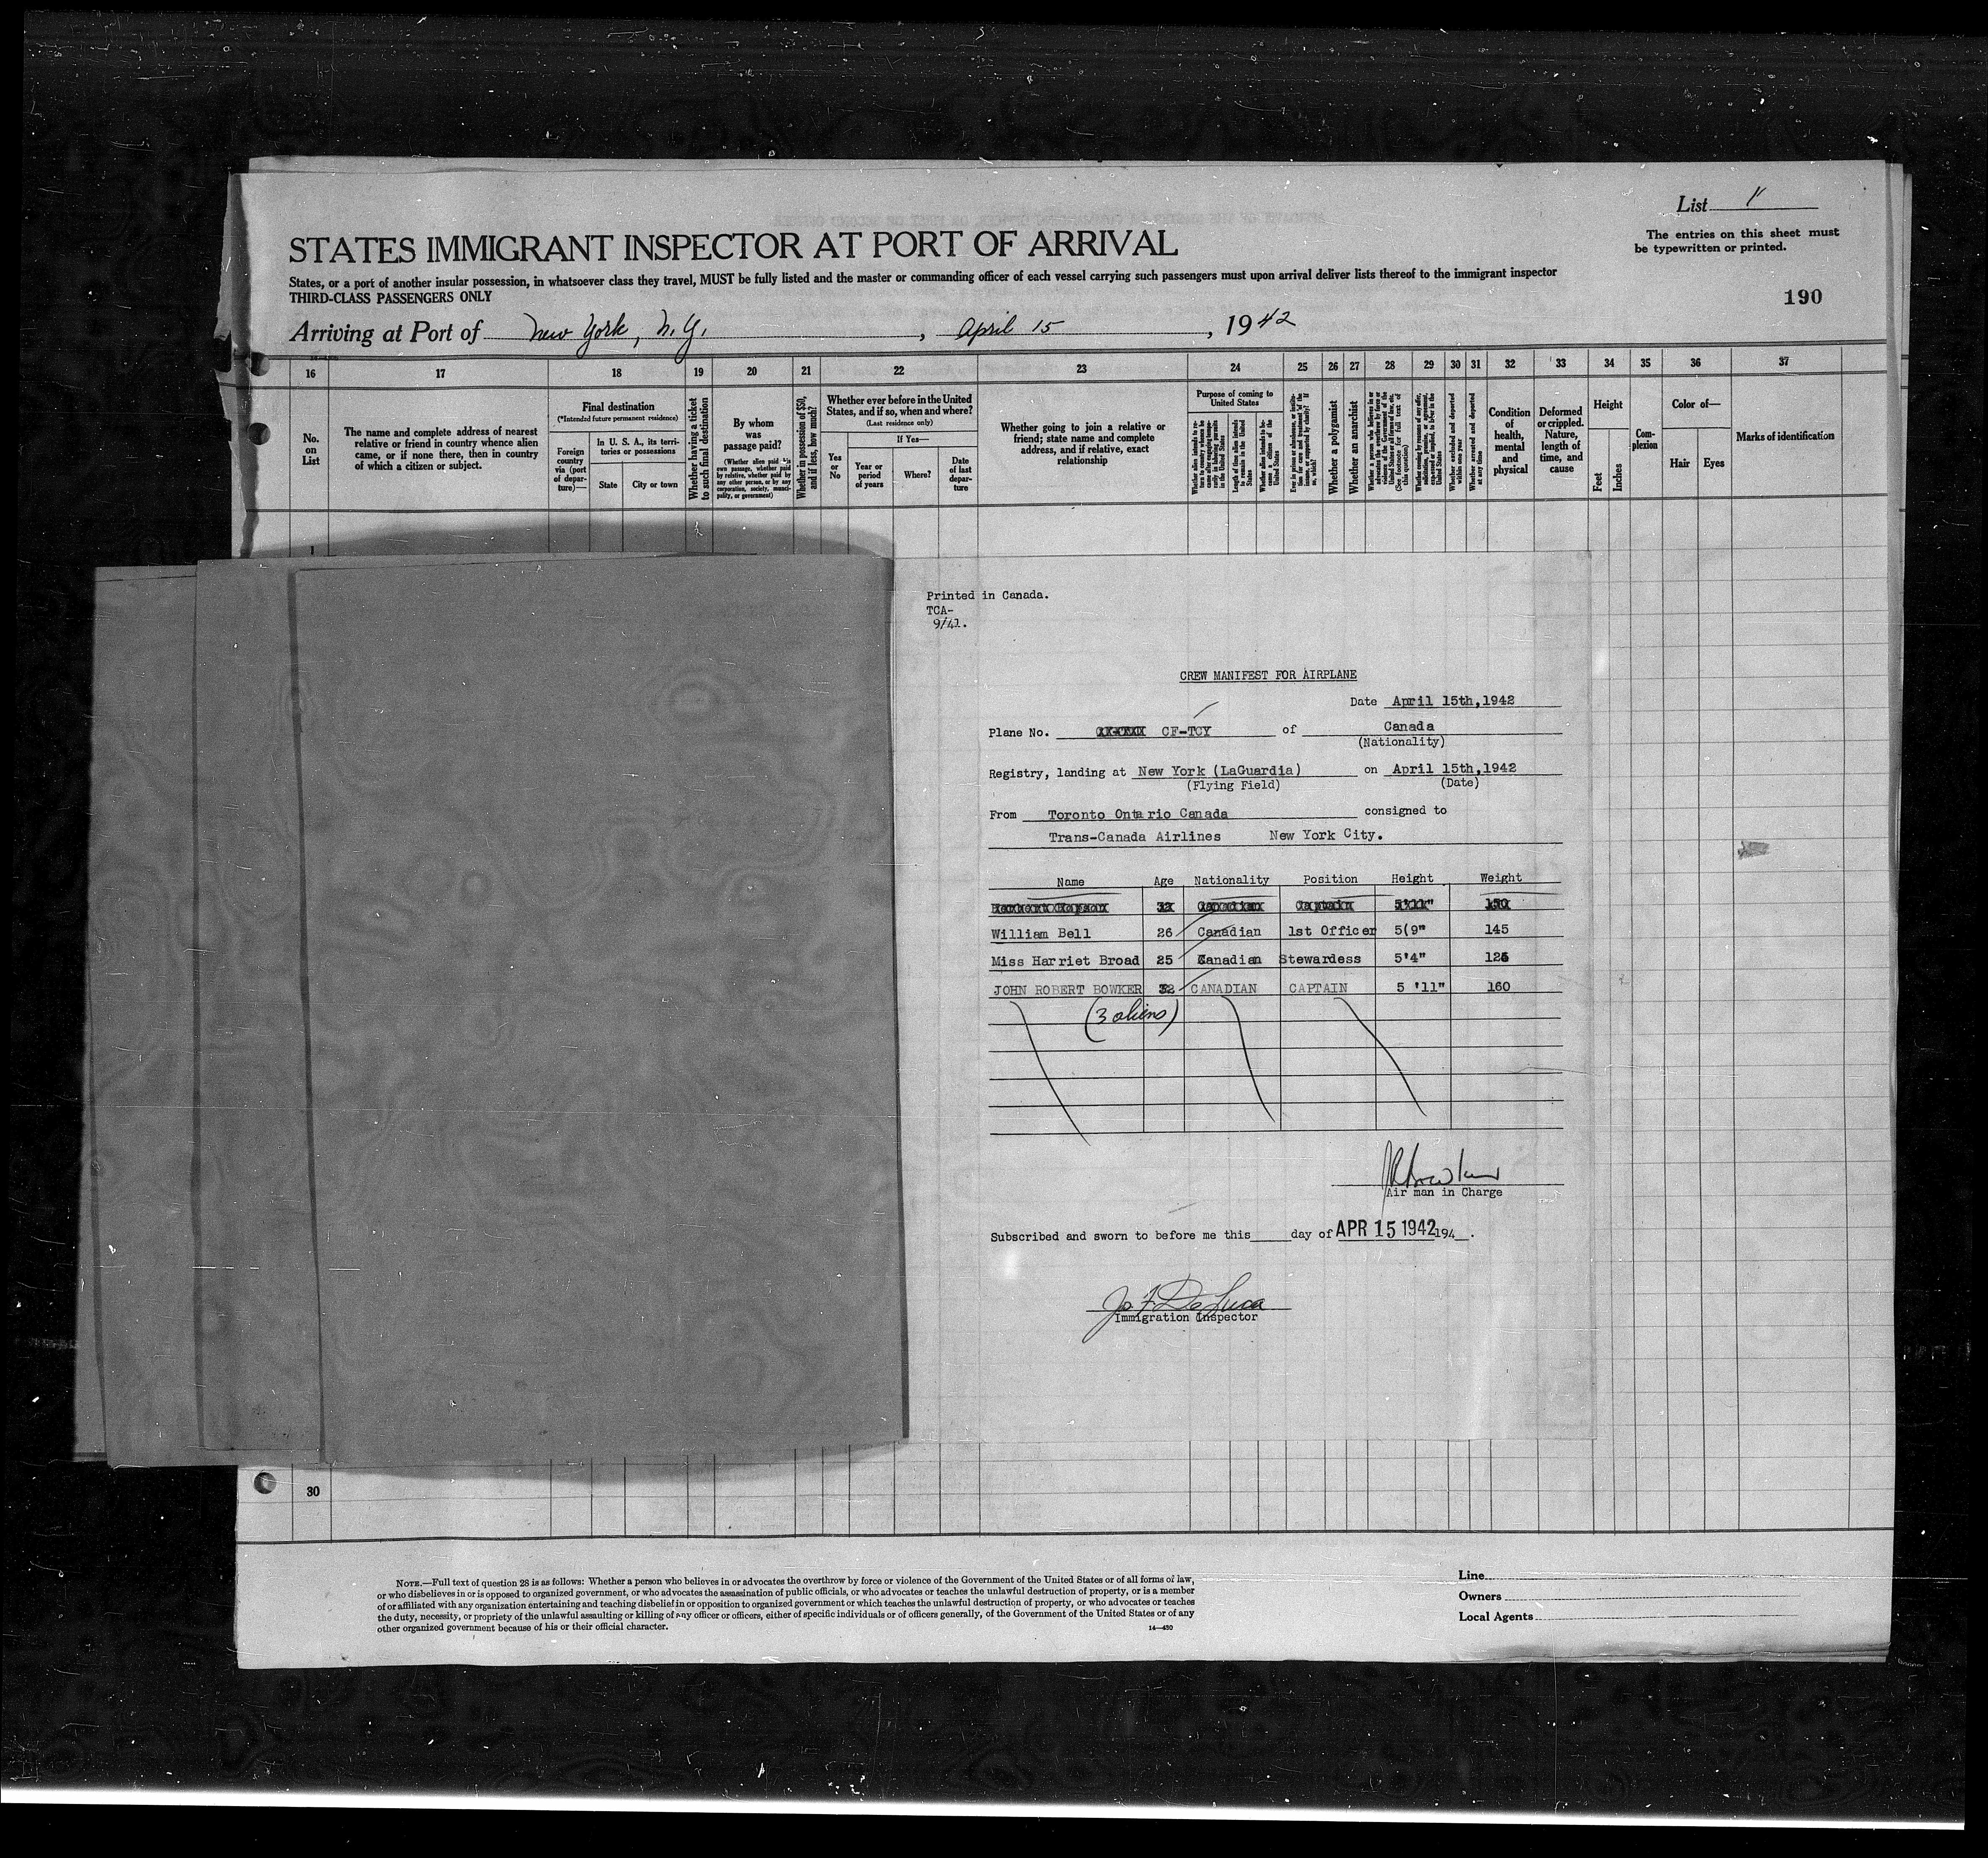 List 11
The entries on this sheet must
be typewritten or printed.
STATES IMMIGRANT INSPECTOR AT PORT OF ARRIVAL
States, or a port of another insular possession, in whatsoever class they travel, MUST be fully listed and the master or commanding officer of each vessel carrying such passengers must upon arrival deliver lists thereof to the immigrant inspector
THIRD-CLASS PASSENGERS ONLY
190
Arriving at Port of New York, N.Y., April 15, 1942
16 17 18 19 20 21 22 23 24 25 26 27 28 29 30 31 32 33 34 35 36 37
No.
on
List
The name and complete address of nearest
relative or friend in country whence alien
came, or if none there, then in country
of which a citizen or subject.
Final destination
(*Intended future permanent residence)
Foreign
country
via (port
of depar-
ture)—
In U. S. A., its terri-
tories or possessions
State
City or town
Whether having a ticket
to such final destination
By whom
was
passage paid?
(Whether alien paid his
own passage, whether paid
by relative, whether paid by
any other person, or by any
corporation, society, munici-
pality, or government)
Whether in possession of $50,
and if less, how much?
Whether ever before in the United
States, and if so, when and where?
(Last residence only)
Yes
or
No
If Yes—
Year or
period
of years
Where?
Date
of last
depar-
ture
Whether going to join a relative or
friend; state name and complete
address, and if relative, exact
relationship
Purpose of coming to
United States
Length of time alien intends
to remain in the United
States
Whether a polygamist
Whether an anarchist
(See footnote for full text of
this question)
Whether excluded and deported
within one year
Whether arrested and deported
at any time
Condition
of
health,
mental
and
physical
Deformed
or crippled.
Nature,
length of
time, and
cause
Height
Feet
Inches
Com-
plexion
Color of—
Hair
Eyes
Marks of identification
1
Printed in Canada.
TCA-
9/41.
CREW MANIFEST FOR AIRPLANE
Date April 15th,1942
Plane No. CF-TCY of Canada
(Nationality)
Registry, landing at New York (LaGuardia) on April 15th,1942
(Flying Field) (Date)
From Toronto Ontario Canada consigned to
Trans-Canada Airlines New York City.
Name Age Nationality Position Height Weight
William Bell 26 Canadian 1st Officer 5(9" 145
Miss Harriet Broad 25 Canadian Stewardess 5'4" 125
JOHN ROBERT BOWKER 32 CANADIAN CAPTAIN 5 '11" 160
(3 aliens)
JRBowker
Air man in Charge
Subscribed and sworn to before me this day of APR 15 1942 194 .
Jo F De Luca
Immigration Inspector
30
NOTE.—Full text of question 28 is as follows: Whether a person who believes in or advocates the overthrow by force or violence of the Government of the United States or of all forms of law,
or who disbelieves in or is opposed to organized government, or who advocates the assassination of public officials, or who advocates or teaches the unlawful destruction of property, or is a member
of or affiliated with any organization entertaining and teaching disbelief in or opposition to organized government or which teaches the unlawful destruction of property, or who advocates or teaches
the duty, necessity, or propriety of the unlawful assaulting or killing of any officer or officers, either of specific individuals or of officers generally, of the Government of the United States or of any
other organized government because of his or their official character.
14—430
Line
Owners
Local Agents